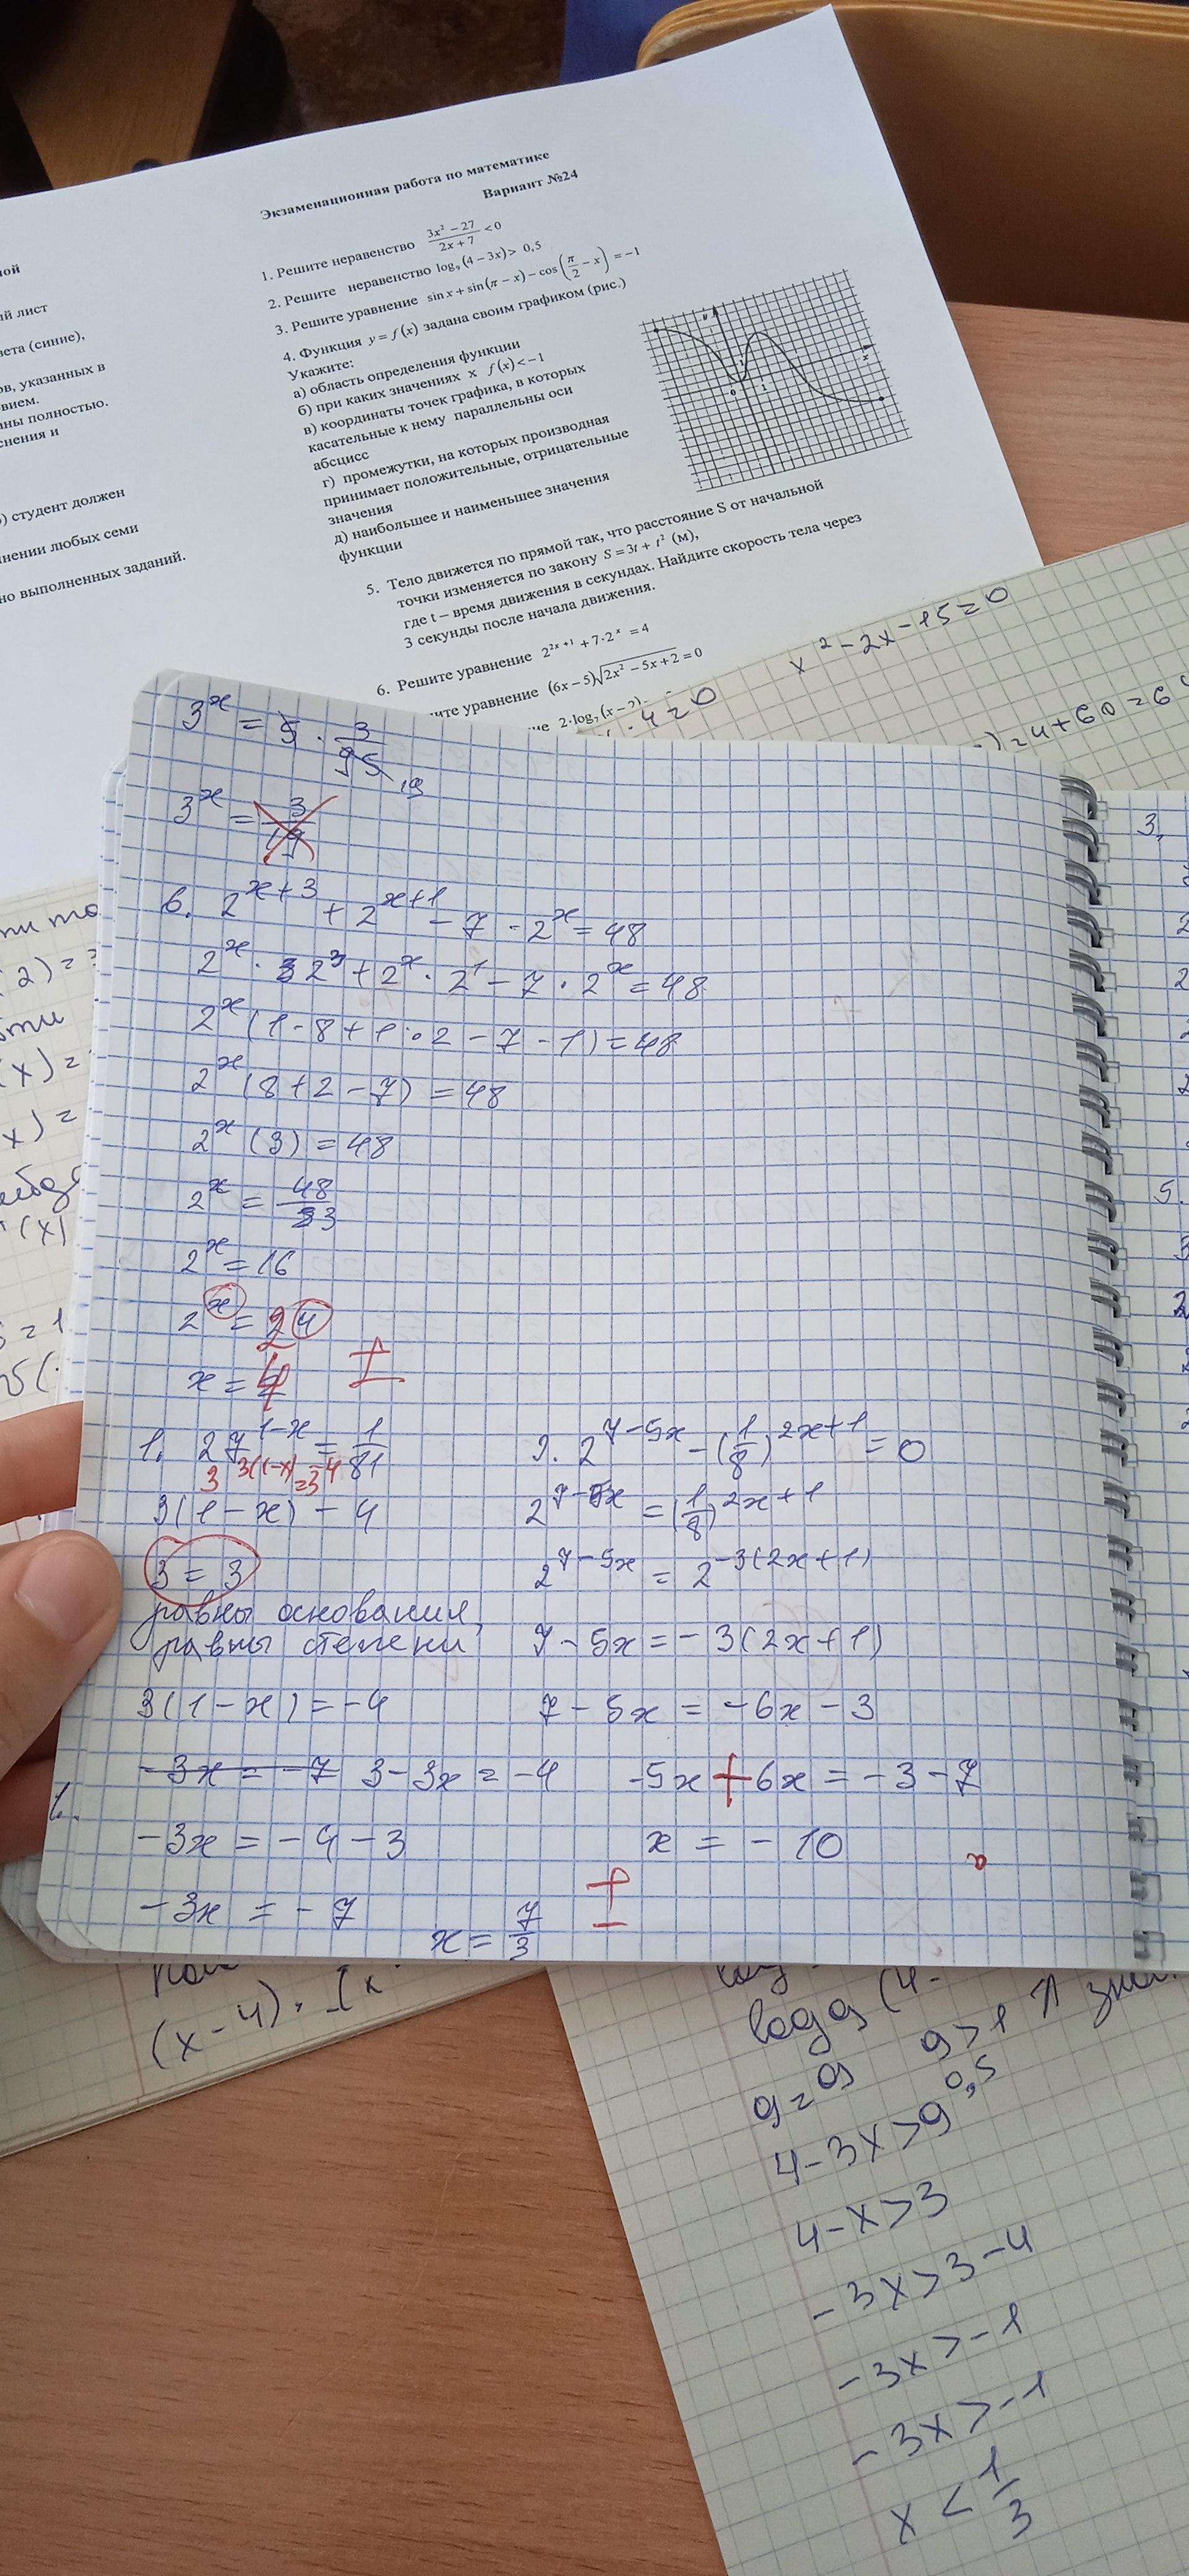 Экзаменационная работа по математике
Вариант №24
1. Решите неравенство (3x² − 27)/(2x + 7) < 0
2. Решите неравенство log₉(4 − 3x) > 0,5
3. Решите уравнение sin x + sin(π − x) − cos(π/2 − x) = −1
4. Функция y = f(x) задана своим графиком (рис.)
Укажите:
а) область определения функции
б) при каких значениях x f(x) < −1
в) координаты точек графика, в которых
касательные к нему параллельны оси
абсцисс
г) промежутки, на которых производная
принимает положительные, отрицательные
значения
д) наибольшее и наименьшее значения
функции
5. Тело движется по прямой так, что расстояние S от начальной
точки изменяется по закону S = 3t + t² (м),
где t – время движения в секундах. Найдите скорость тела через
3 секунды после начала движения.
6. Решите уравнение 2^(2x+1) + 7·2^x = 4
уравнение (6x − 5)√(2x² − 5x + 2) = 0
лист
(синие),
указанных в
полностью.
студент должен
любых семи
выполненных заданий.
x² − 2x − 15 = 0
= 4 + 60 = 64
3^x = 5 · 3/95 19
3^x = 3/19
6. 2^(x+3) + 2^(x+1) − 7 · 2^x = 48
2^x · 2³ + 2^x · 2¹ − 7 · 2^x = 48
2^x (1 · 8 + 1 · 2 − 7 · 1) = 48
2^x (8 + 2 − 7) = 48
2^x (3) = 48
2^x = 48/3
2^x = 16
2^x = 2^4
x = 4 ±
1. 27^(1−x) = 1/81
3^(3(1−x)) = 3^(−4)
3(1 − x) − 4
3 = 3
равны основания,
равны степени
3(1 − x) = −4
−3x = −7 3 − 3x = −4
−3x = −4 − 3
−3x = −7
x = 7/3 ±
2. 2^(7−5x) − (1/8)^(2x+1) = 0
2^(7−5x) = (1/8)^(2x+1)
2^(7−5x) = 2^(−3(2x+1))
7 − 5x = −3(2x + 1)
7 − 5x = −6x − 3
−5x + 6x = −3 − 7
x = −10
log₉(4 −
9 = 9 9 > 1
4 − 3x > 9^0,5
4 − x > 3
−3x > 3 − 4
−3x > −1
−3x > −1
x < 1/3